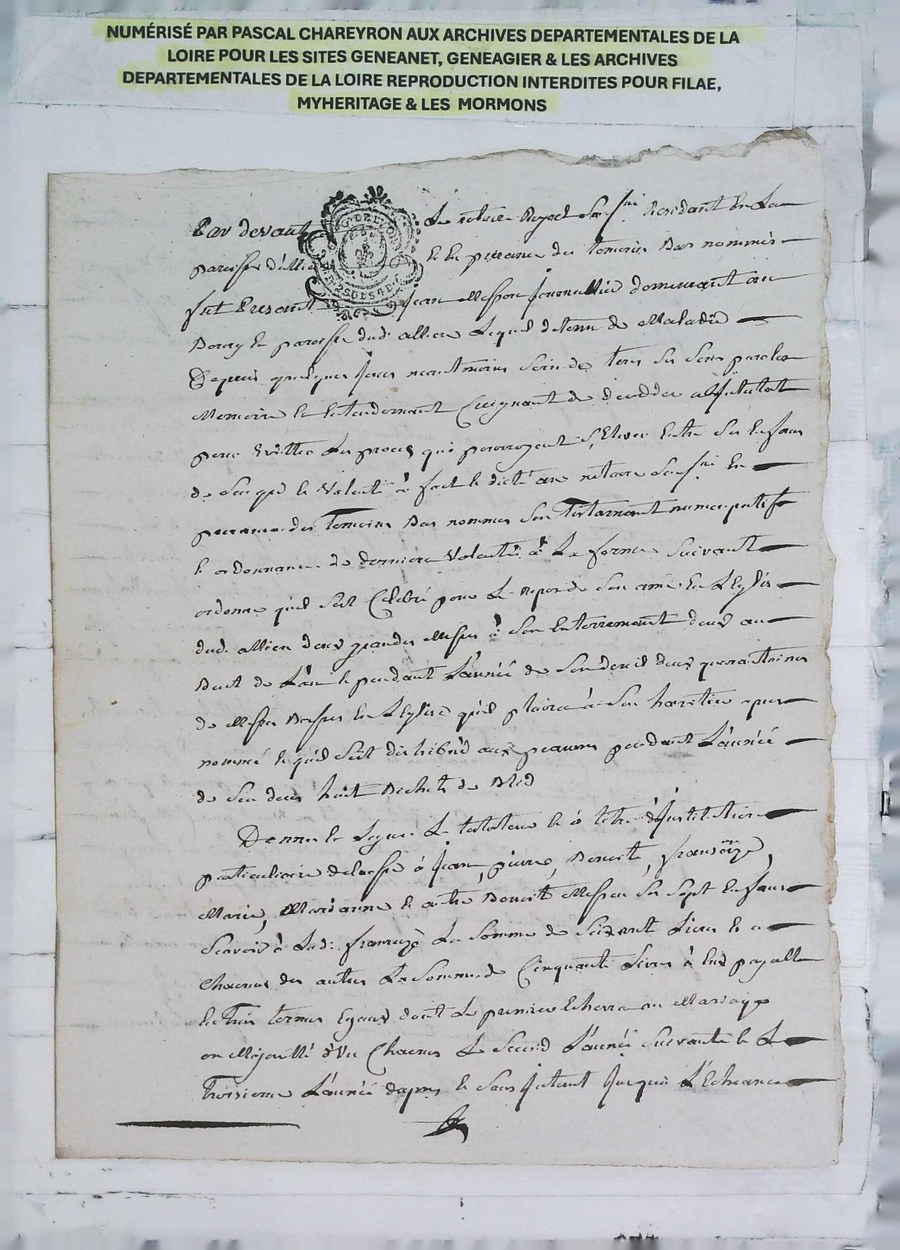 NUMÉRISÉ PAR PASCAL CHAREYRON AUX ARCHIVES DEPARTEMENTALES DE LA
LOIRE POUR LES SITES GENEANET, GENEAGIER & LES ARCHIVES
DEPARTEMENTALES DE LA LOIRE REPRODUCTION INTERDITES POUR FILAE,
MYHERITAGE & LES MORMONS
Par devant Le notaire Royal Sousigné Residant En La
paroisse d'allie et En presance des temoins Bas nommés
fut Presant Jean Journallier demeurant au
Bourg et paroisse dud. allieu Lequel detenu de Maladie
Depuis quelques Jours neantmoins Sain de tous Ses Sens parole
Memoire et Entendement Creignant de deceder
pour Evitter Les proces qui pourroyent S'Elever Entre Ses Enfans
de Son gré et Volonté à fait et dicté au notaire Sousigné En
presance des Temoins Bas nommes Son Testament nuncupatif
et ordonnance de derniere Volonté à La forme Suivant
ordonne qu'il Soit Celebré pour Le repos de Son ame En L'Eglise
dud. allieu deux grandes Messes à Son Enterrement deux au
Bout de L'an et pendant L'année de Son deuil deux quarantaines
de Messes Basses En L'Eglise qu'il plaira à Son haritier apres
nommé et qu'il Soit distribué aux pauvres pendant L'année
de Son deuil huit Bichets de Bled
Donne et Legue Le testateur et à titre d'Institution
particuliaire delaisse à Jean, pierre, Benoite, fransoize,
Marie, Marianne et autre Benoit Ses Sept Enfans
Scavoir à Lad. franсoize La Somme de Soixante Livres et a
Chacun des autres La Somme de Cinquante Livres à Eux payable
En Trois termes Egaux dont Le premier Echerra au Mariage
ou Majorité d'un Chacun Le Second L'année Suivante et Le
Troisieme L'année d'apres et Sans Interet Jusques L'Echeance